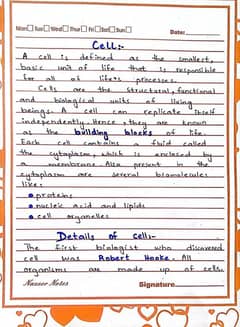 Mon Tue Wed Thu Fri Sat Sun Date:
Cell:-
A cell is defined as the smallest,
basic unit of life that is responsible
for all of life's processes.
Cells are the structural, functional
and biological units of living
beings. A cell can replicate itself
independently. Hence, they are known
as the building blocks of life.
Each cell contains a fluid called
the cytoplasm, which is enclosed by
a membrane. Also present in the
cytoplasm are several biomolecules
like:
proteins
nucleic acid and lipids
cell organelles
Details of cell:-
The first biologist who discovered
cell was Robert Hooke. All
organisms are made up of cells.
Nasser Notes Signature